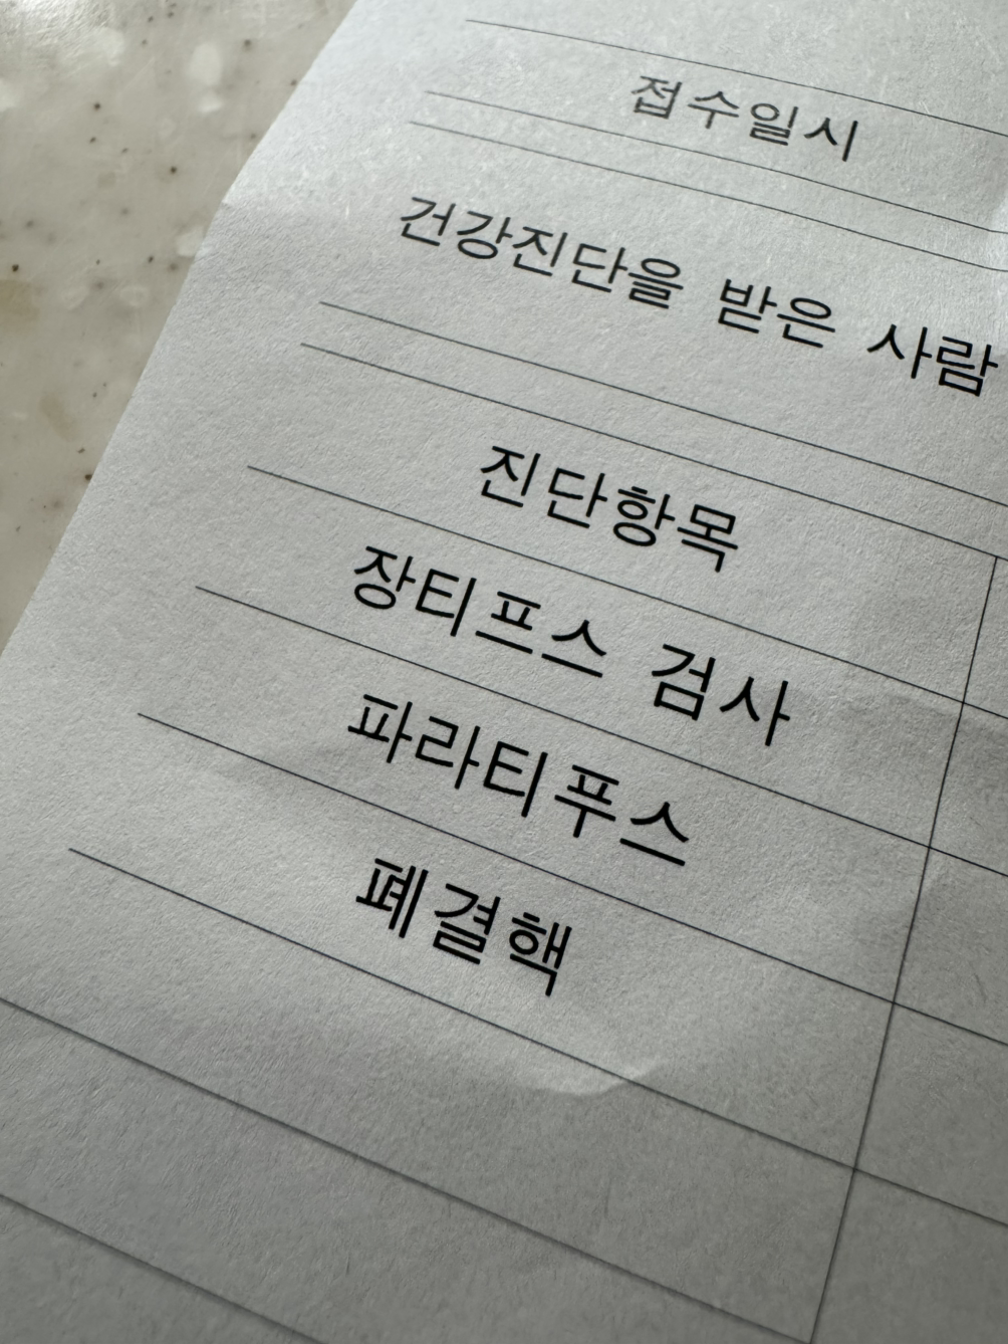 접수일시
건강진단을 받은 사람
진단항목
장티프스 검사
파라티푸스
폐결핵